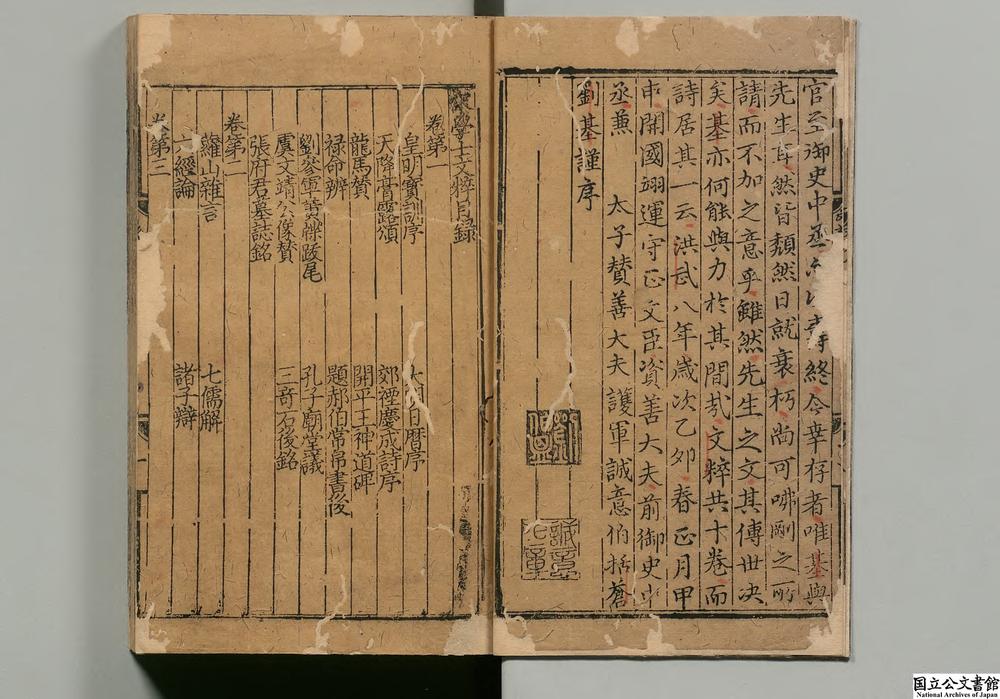 官至御史中丞 壽終今幸存者唯基與
先生耳然皆頹然日就衰朽尚可咈剛之所
請而不加之意乎雖然先生之文其傳世决
矣基亦何能與力於其間哉文粹共十卷而
詩居其一云洪武八年歲次乙夘春正月甲
申開國翊運守正文臣資善大夫前御史中
丞兼 太子贊善大夫護軍誠意伯括蒼
劉基謹序
學士文粹目録
卷第一
皇明寳訓序 日曆序
天降膏露頌 郊禋慶成詩序
龍馬贊 開平王神道碑
禄命辨 題郝伯常帛書後
劉參軍黄牒跋尾 孔子廟堂議
虞文靖公像贊 三竒石後銘
張府君墓誌銘
卷第二
蘿山雜言 七儒解
六經論 諸子辯
卷第三
国立公文書館
National Archives of Japan